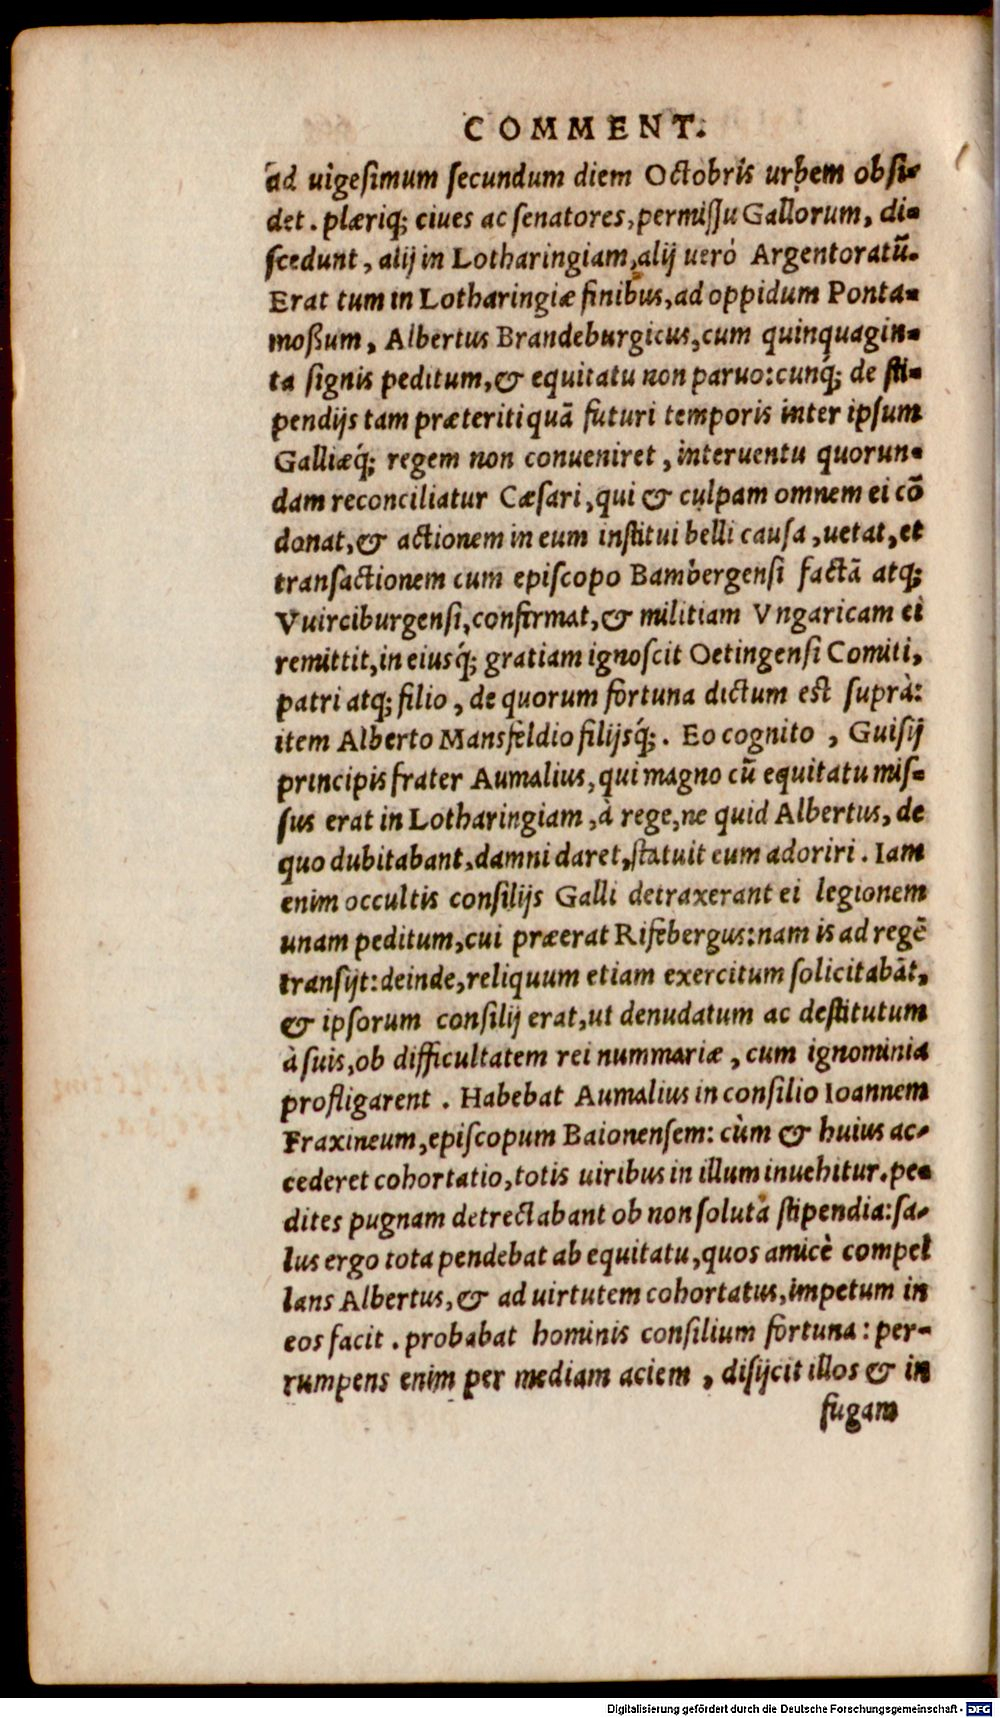 COMMENT.
ad uigesimum secundum diem Octobris urbem obsi-
det. plæriq; ciues ac senatores, permissu Gallorum, di-
scedunt, alij in Lotharingiam, alij ueró Argentoratū.
Erat tum in Lotharingiæ finibus, ad oppidum Ponta-
moßum, Albertus Brandeburgicus, cum quinquagin-
ta signis peditum, & equitatu non paruo: cunq́; de sti-
pendijs tam præteriti quā futuri temporis inter ipsum
Galliæq́; regem non conueniret, interuentu quorun-
dam reconciliatur Cæsari, qui & culpam omnem ei cō
donat, & actionem in eum institui belli causa, uetat, et
transactionem cum episcopo Bambergensi factā atq;
Vuirciburgensi, confirmat, & militiam Vngaricam ei
remittit, in eiusq́; gratiam ignoscit Oetingensi Comiti,
patri atq; filio, de quorum fortuna dictum est suprà:
item Alberto Mansfeldio filijsq́;. Eo cognito, Guisij
principis frater Aumalius, qui magno cū equitatu mis-
sus erat in Lotharingiam, à rege, ne quid Albertus, de
quo dubitabant, damni daret, statuit eum adoriri. Iam
enim occultis consilijs Galli detraxerant ei legionem
unam peditum, cui præerat Rifebergus: nam is ad regē
transijt: deinde, reliquum etiam exercitum solicitabāt,
& ipsorum consilij erat, ut denudatum ac destitutum
à suis, ob difficultatem rei nummariæ, cum ignominia
profligarent. Habebat Aumalius in consilio Ioannem
Fraxineum, episcopum Baionensem: cùm & huius ac-
cederet cohortatio, totis uiribus in illum inuehitur. pe-
dites pugnam detrectabant ob non soluta stipendia: sa-
lus ergo tota pendebat ab equitatu, quos amicè compel
lans Albertus, & ad uirtutem cohortatus, impetum in
eos facit. probabat hominis consilium fortuna: per-
rumpens enim per mediam aciem, disijcit illos & in
fugam
Digitalisierung gefördert durch die Deutsche Forschungsgemeinschaft - DFG